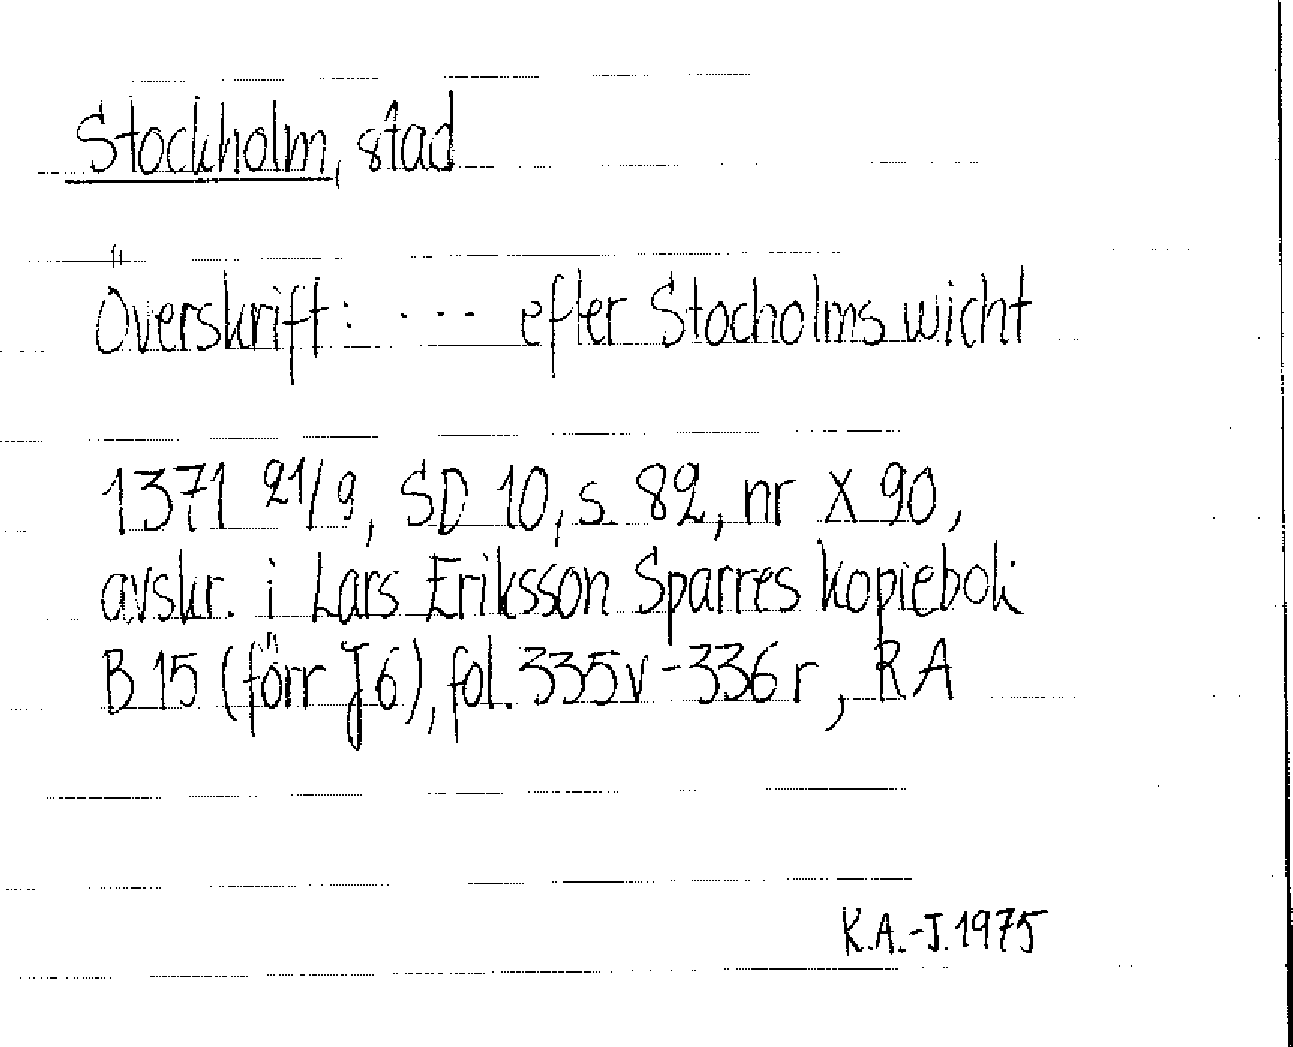 Stockholm, stad
Överskrift: . . . . efter Stocholms wicht
1371 21/9, SD 10, s. 82, nr X 90,
avskr. i Lars Eriksson Sparres kopiebok
B 15 (förr J 6), fol. 335v - 336 r, RA
K.A.-J. 1975